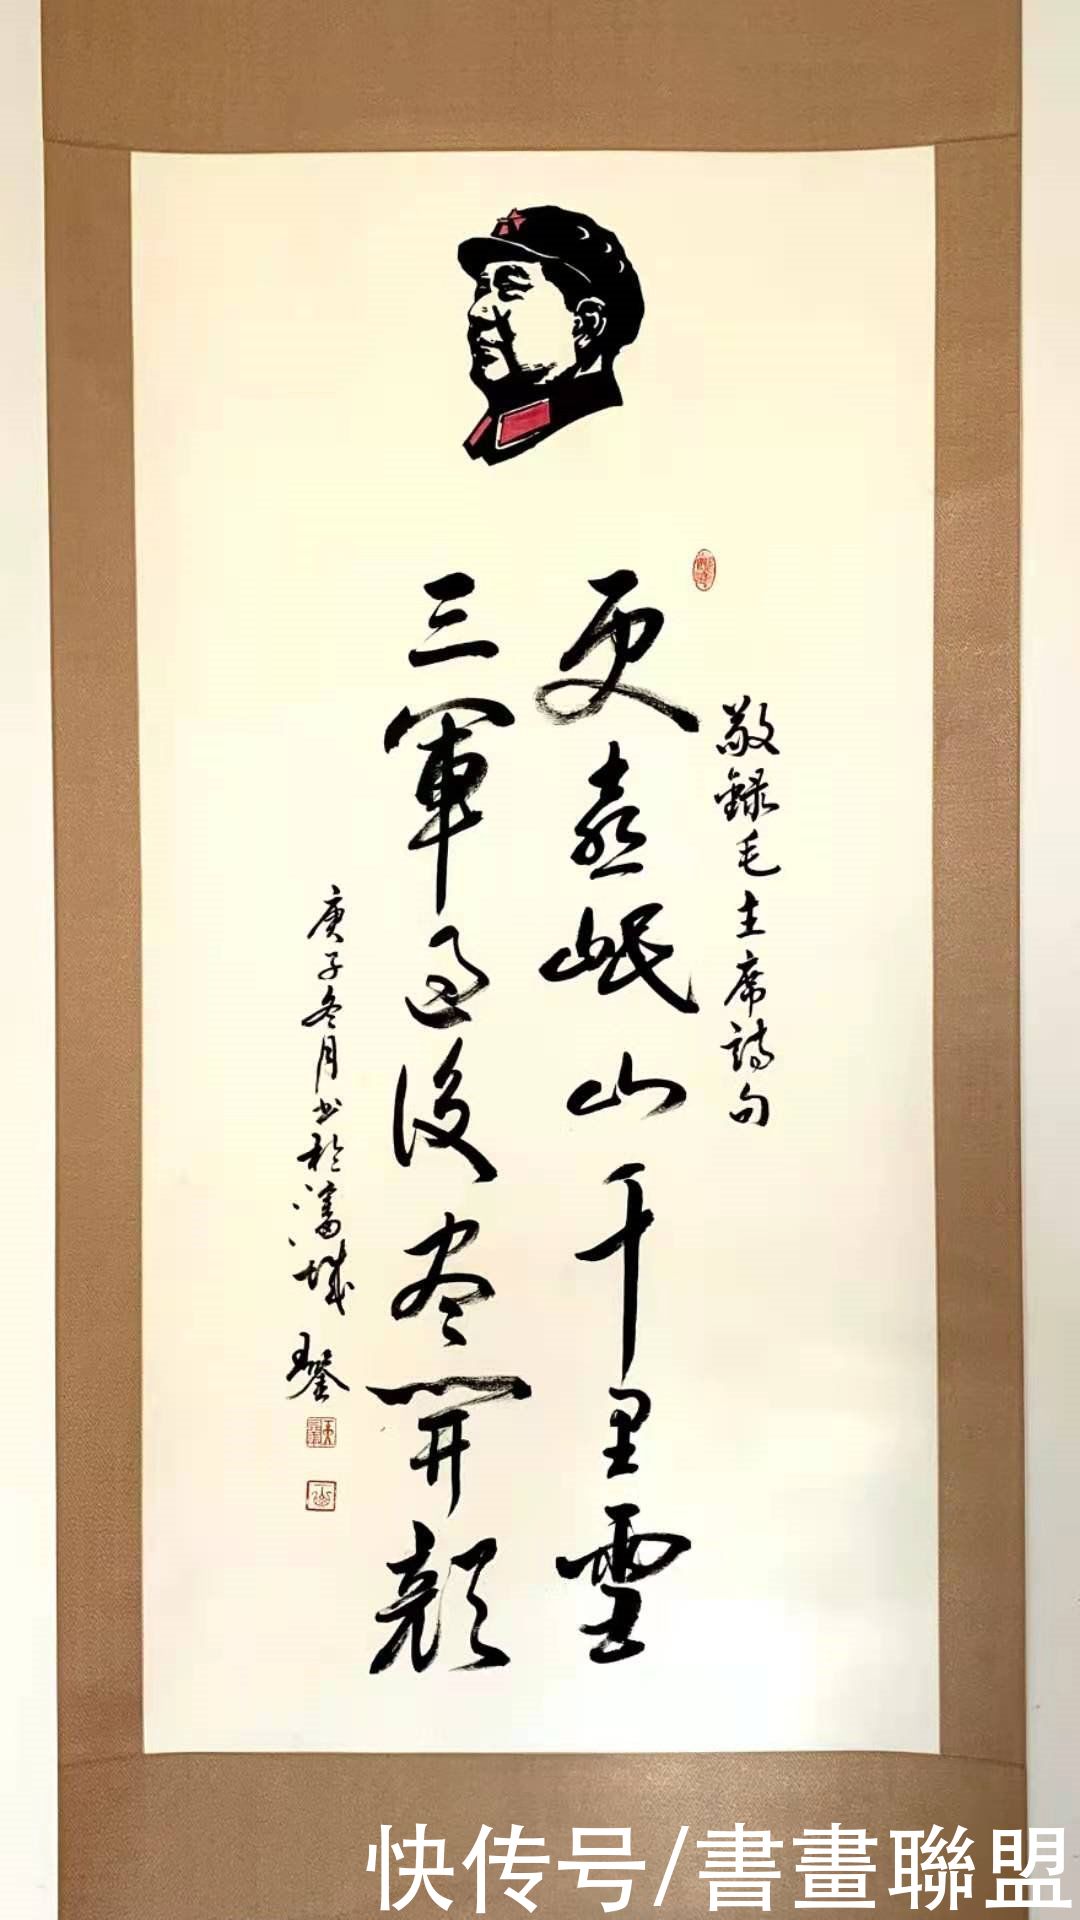 敬録毛主席詩句
更喜岷山千里雪
三軍過後尽開顏
庚子冬月书於瀋城
快传号/書畫聯盟